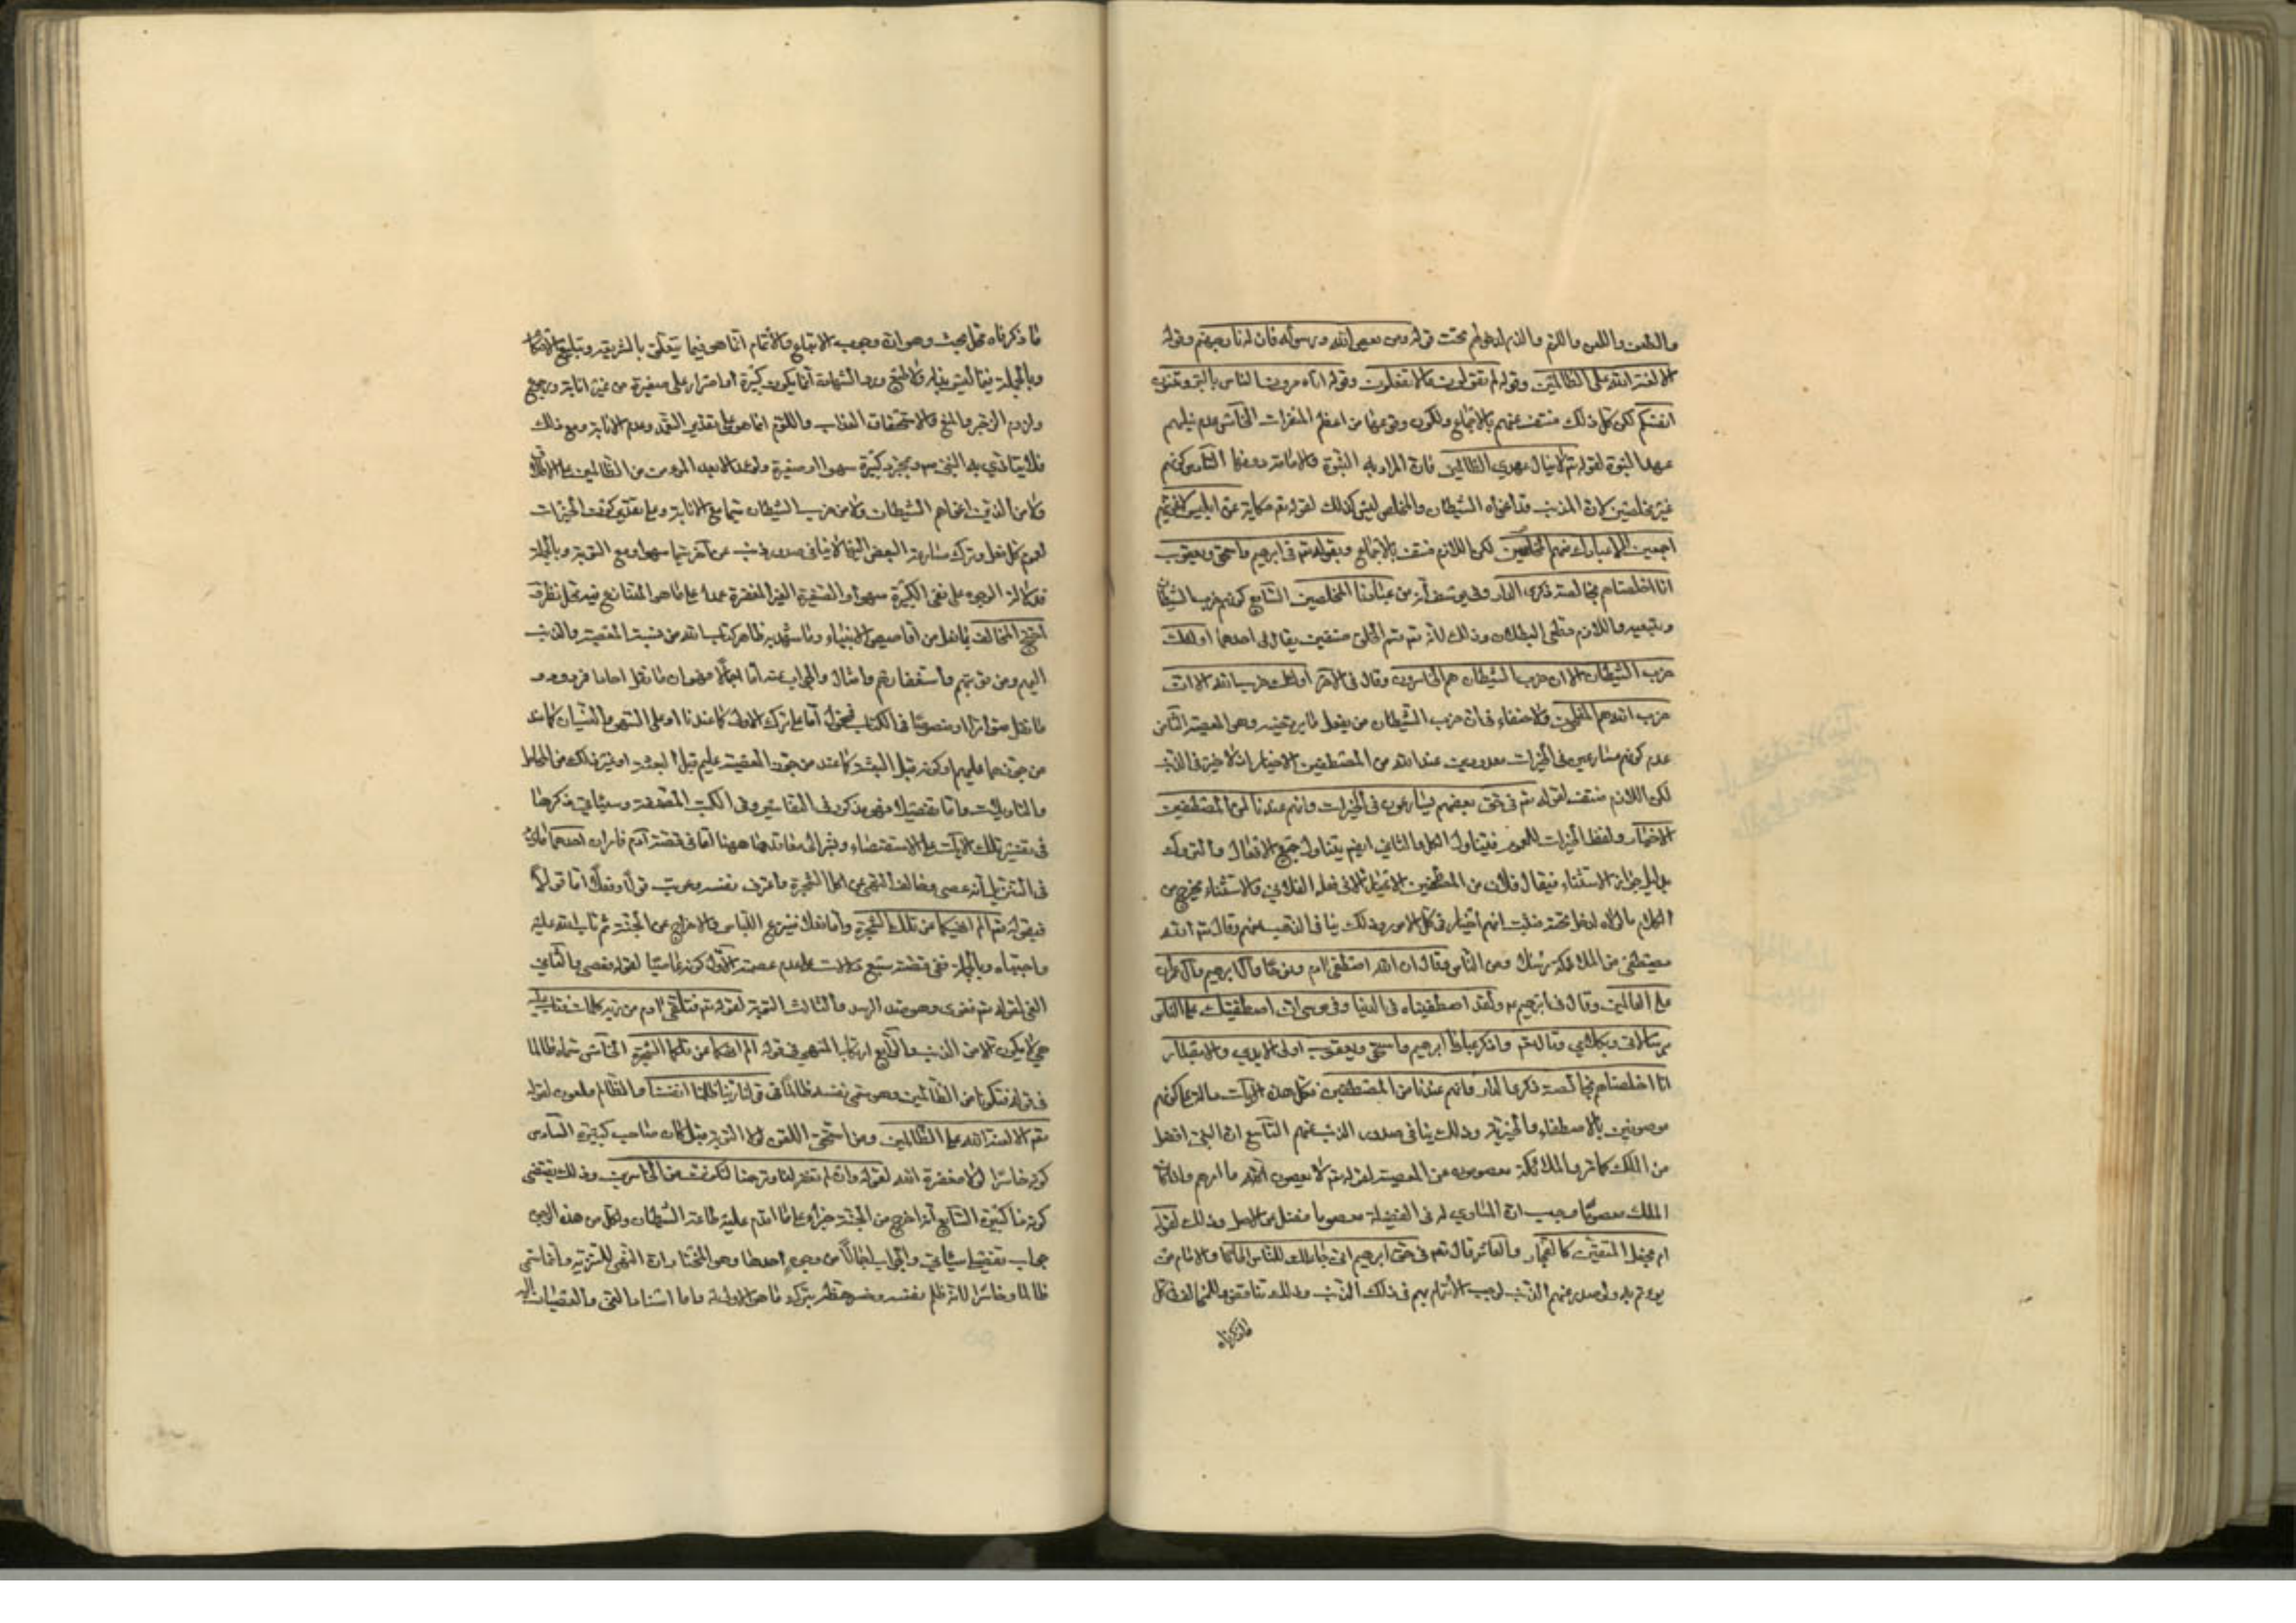 والطعن واللعن واللوم والذم لدخولهم تحت قوله ومن يعص الله ورسوله فان له نار جهنم وقوله
الا لعنة الله على الظالمين وقوله لم تقولون ما لا تفعلون وقوله اتامرون الناس بالبر وتنسون
انفسكم لكن كل ذلك منتف عنهم بالاجماع ولكون وقوعها من اعظم المنفرات الخامس عدم نيلهم
عهد النبوة لقوله تع لا ينال عهدي الظالمين فان المراد به النبوة والامامة دونها السادس كونهم
غير مخلصين لان المذنب قد اغواه الشيطان والمخلص ليس كذلك لقوله تع حكاية عن ابليس لاغوينهم
اجمعين الا عبادك منهم المخلصين لكن اللازم منتف بالاجماع وبقوله تع في ابرهيم واسحق ويعقوب
انا اخلصناهم بخالصة ذكرى الدار وفي يوسف انه من عبادنا المخلصين السابع كونهم حزب الشيطان
ومتبعيه واللازم قطعي البطلان وذلك لانه تع قسم الخلق صنفين فقال في احدهما اولئك
حزب الشيطان الا ان حزب الشيطان هم الخاسرون وقال في الاخر اولئك حزب الله الا ان
حزب الله هم المفلحون ولا خفاء في ان حزب الشيطان من يفعل ما يرتضيه وهو المعصية الثامن
عدم كونهم مسارعين في الخيرات معدودين عند الله من المصطفين الاخيار اذ لا خير في الذنب
لكن اللازم منتف لقوله تع في حق بعضهم يسارعون في الخيرات وانهم عندنا لمن المصطفين
الاخيار ولفظ الخيرات للعموم فيتناول الكل والثاني ايضا يتناول جميع الافعال والتروك
بدليل جواز الاستثناء فيقال فلان من المصطفين الاخيار الا في فعله الفلاني والاستثناء يخرج من
الكلام ما لولاه لدخل تحته فثبت انهم اخيار في كل الامور وذلك ينافي الذنب عنهم وقال تع الله
يصطفي من الملائكة رسلا ومن الناس وقال ان الله اصطفى ادم ونوحا وآل ابرهيم وآل عمران
على العالمين وقال في ابرهيم ولقد اصطفيناه في الدنيا وفي موسى اني اصطفيتك على الناس
برسالاتي وبكلامي وقال تع واذكر عبادنا ابرهيم واسحق ويعقوب اولى الايدي والابصار
انا اخلصناهم بخالصة ذكرى الدار وانهم عندنا من المصطفين فكل هذه الآيات دالة على كونهم
موصوفين بالاصطفاء والخيرية وذلك ينافي صدور الذنب عنهم التاسع ان النبي افضل
من الملك كما مر والملائكة معصومون عن المعصية لقوله تع لا يعصون الله ما امرهم واذا كان
الملك معصوما وجب ان المساوي له في الفضيلة معصوما فضلا من الافضل وذلك لقوله
ام نجعل المتقين كالفجار والعاشر قال تع في حق ابرهيم اني جاعلك للناس اماما والامام من
يؤتم به ولو صدر منهم الذنب لوجب الائتمام بهم في ذلك الذنب وذلك تناقض وللمخالف في كل
ما ذكرناه
ما ذكرناه محل بحث وهو ان وجوب الاتباع والائتمام انما هو فيما يتعلق بالشريعة وتبليغ الاحكام
وبالجملة فيما ليس بذلة ولا طبع ورد الشهادة انما يكون بكبيرة او اصرار على صغيرة من غير انابة ورجوع
ولزوم الزجر والمنع والاستحقاق العذاب واللوم انما هو على تقدير التعمد وعدم الانابة ومع ذلك
فلا يتاذي به النبي وبمجرد كبيرة سهوا او صغيرة ولو عمدا لا يعد المرء من الظالمين على الاطلاق
ولا من الذين اغواهم الشيطان ولا من حزب الشيطان سيما مع الانابة وعلى تقدير كون الخيرات
لعموم كل فعل وترك مسارعة البعض اليها لا ينافي صدور ذنب عن آخر سيما سهوا ومع التوبة وبالجملة
فدلالة الوجوه على نفي الكبيرة سهوا والصغيرة الغير المنفرة عمدا على ما هو المتنازع فيه محل نظر
احتج المخالف بما نقل من اقاصيص الانبياء وما شهد به ظاهر كتاب الله من نسبة المعصية والذنب
اليهم ومن توبتهم واستغفارهم وامثال والجواب عنه اما اجمالا فهو ان ما نقل احادا فمردود و
ما نقل متواترا او منصوصا في الكتاب فمحمول اما على ترك الاولى كما عندنا او على السهو والنسيان كما عند
من جوزهما عليهم او كونه قبل البعثة كما عند من جوز المعصية عليهم قبل البعثة او غير ذلك من المحامل
والتاويلات واما تفصيلا فهو مذكور في التفاسير وفي الكتب المصنفة وسياتي ذكرها
في تفسير تلك الآيات على الاستقصاء ونشير الى معاقدها ههنا اما في قصة آدم فامران احدهما ما ورد
في التنزيل انه عصى وخالف النهي عن اكل الشجرة واعترف بنفسه وعوتب قولا وفعلا اما قولا
فبقوله تع الم انهكما عن تلك الشجرة واما فعلا فبنزع اللباس والاخراج عن الجنة ثم تاب الله عليه
واجتباه وبالجملة ففي قصته سبع دلالات على عدم عصمته الاول كونه عاصيا لقوله فعصى والثاني
الغي لقوله تع فغوى وهو ضد الرشد والثالث التوبة لقوله تع فتلقى ادم من ربه كلمات فتاب عليه
هي لا يكون الا من الذنب والرابع ارتكاب المنهي في قوله الم انهكما عن تلكما الشجرة الخامس سماه ظالما
في قوله فتكونا من الظالمين وهو سمى نفسه ظالما في قوله ربنا ظلمنا انفسنا والظالم ملعون لقوله
تع الا لعنة الله على الظالمين ومن استحق اللعن لولا التوبة قبل كان صاحب كبيرة السادس
كونه خاسرا لولا مغفرة الله لقوله وان لم تغفر لنا وترحمنا لنكونن من الخاسرين وذلك يقتضي
كونه ذا كبيرة السابع انه اخرج من الجنة جزاء على ما اقدم عليه طاعة الشيطان ولكل من هذه الوجوه
جواب تفصيلا سياتي والجواب اجمالا من وجوه احدها وهو المختار ان النهي للتنزيه وانما سمى
ظالما وخاسرا لانه ظلم نفسه وخسر حظه بترك ما هو الاولى له واما اسناد الغي والعصيان اليه